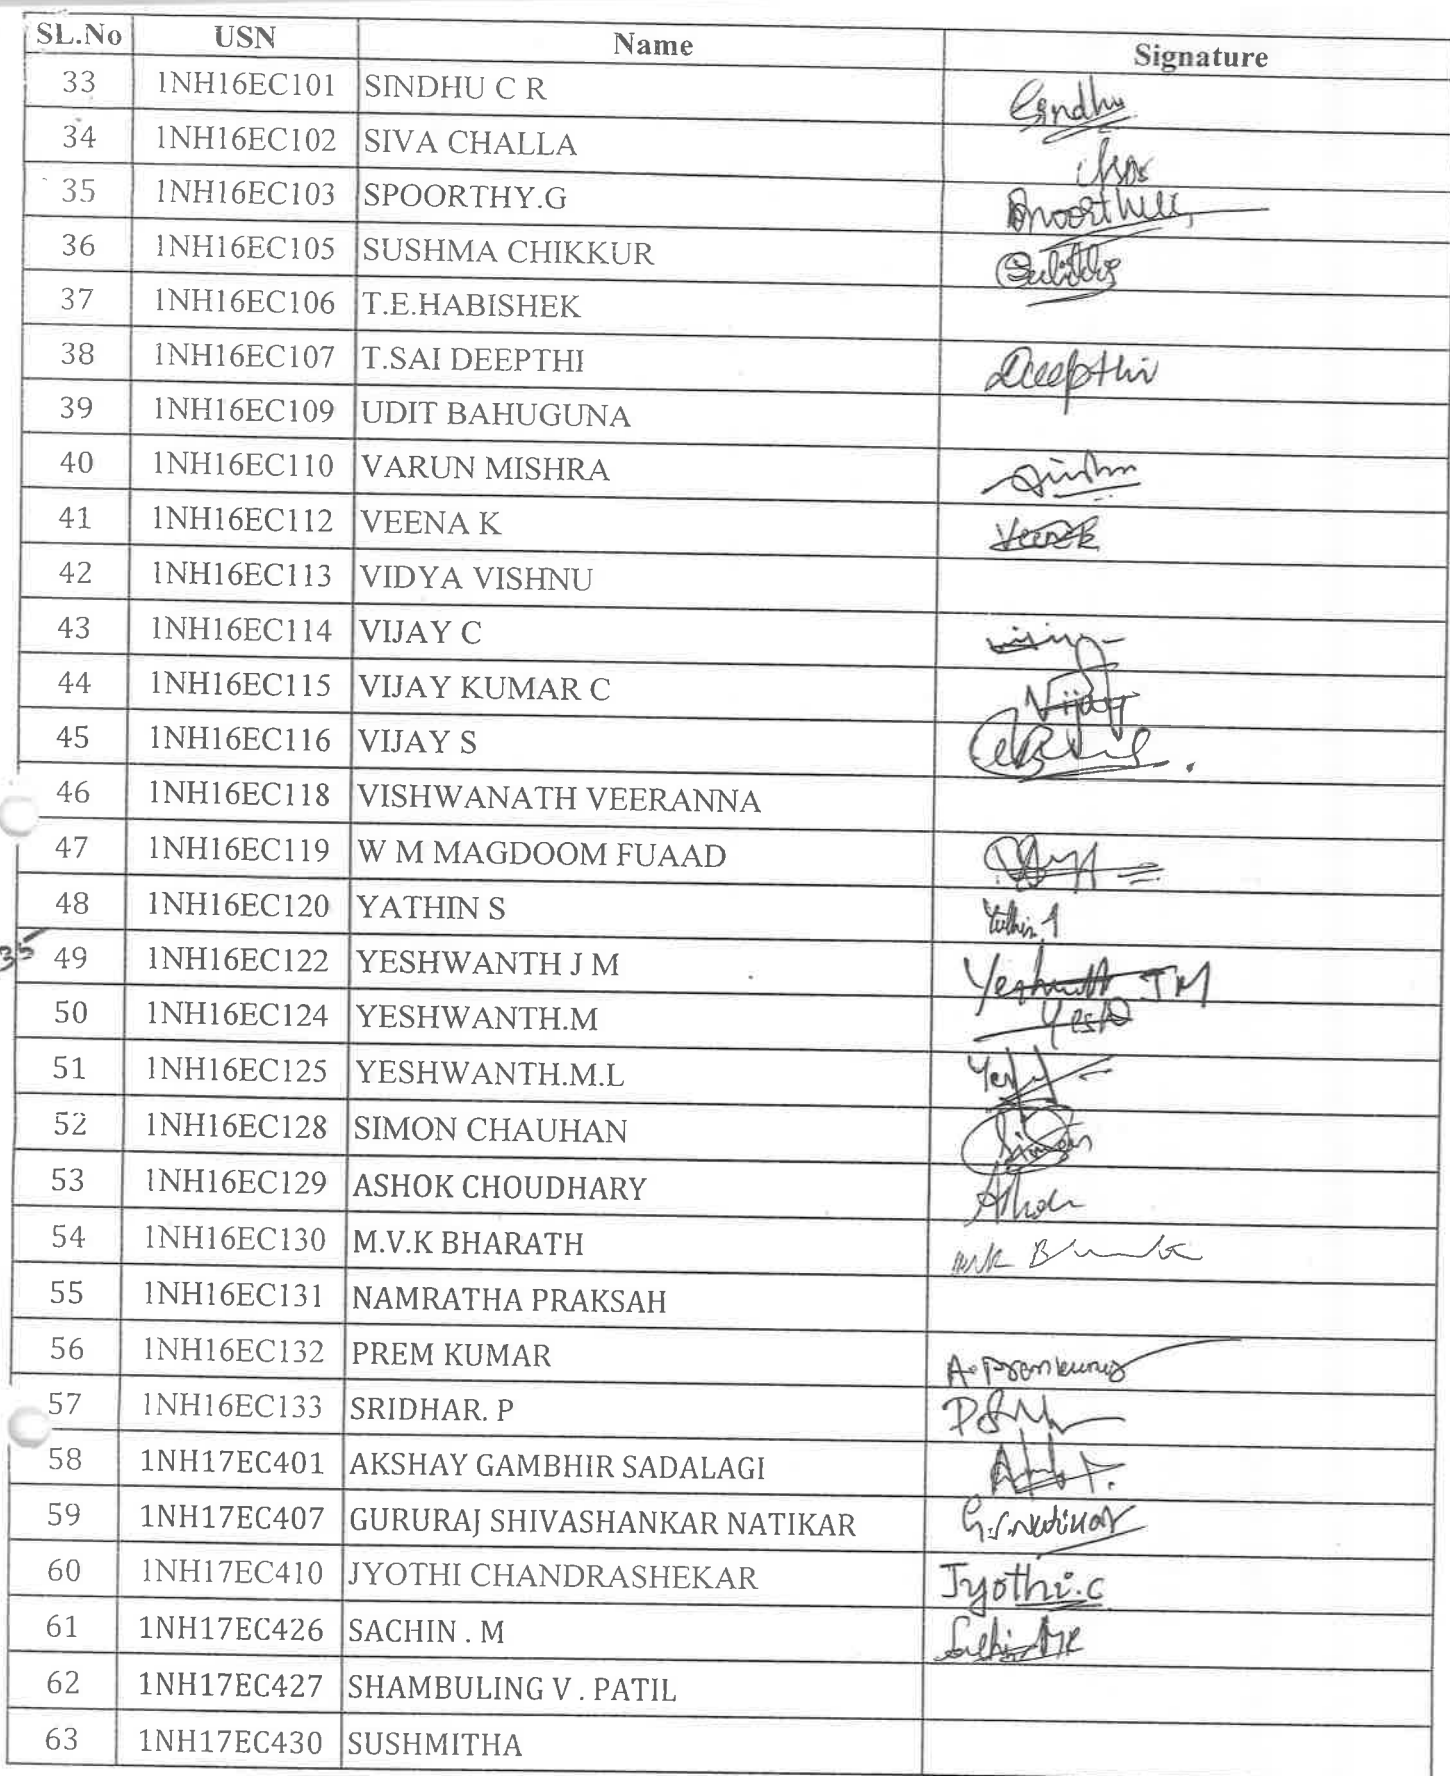 SL.No USN Name Signature
33 1NH16EC101 SINDHU C R Sindhu
34 1NH16EC102 SIVA CHALLA
35 1NH16EC103 SPOORTHY.G
36 1NH16EC105 SUSHMA CHIKKUR
37 1NH16EC106 T.E.HABISHEK
38 1NH16EC107 T.SAI DEEPTHI Deepthi
39 1NH16EC109 UDIT BAHUGUNA
40 1NH16EC110 VARUN MISHRA
41 1NH16EC112 VEENA K
42 1NH16EC113 VIDYA VISHNU
43 1NH16EC114 VIJAY C
44 1NH16EC115 VIJAY KUMAR C Vijay
45 1NH16EC116 VIJAY S
46 1NH16EC118 VISHWANATH VEERANNA
47 1NH16EC119 W M MAGDOOM FUAAD
48 1NH16EC120 YATHIN S Yathin S
35 49 1NH16EC122 YESHWANTH J M Yeshwanth J M
50 1NH16EC124 YESHWANTH.M
51 1NH16EC125 YESHWANTH.M.L
52 1NH16EC128 SIMON CHAUHAN Simon
53 1NH16EC129 ASHOK CHOUDHARY Ashok
54 1NH16EC130 M.V.K BHARATH
55 1NH16EC131 NAMRATHA PRAKSAH
56 1NH16EC132 PREM KUMAR A. Premkumar
57 1NH16EC133 SRIDHAR. P
58 1NH17EC401 AKSHAY GAMBHIR SADALAGI
59 1NH17EC407 GURURAJ SHIVASHANKAR NATIKAR G.S.Natikar
60 1NH17EC410 JYOTHI CHANDRASHEKAR Jyothi.C
61 1NH17EC426 SACHIN . M
62 1NH17EC427 SHAMBULING V . PATIL
63 1NH17EC430 SUSHMITHA